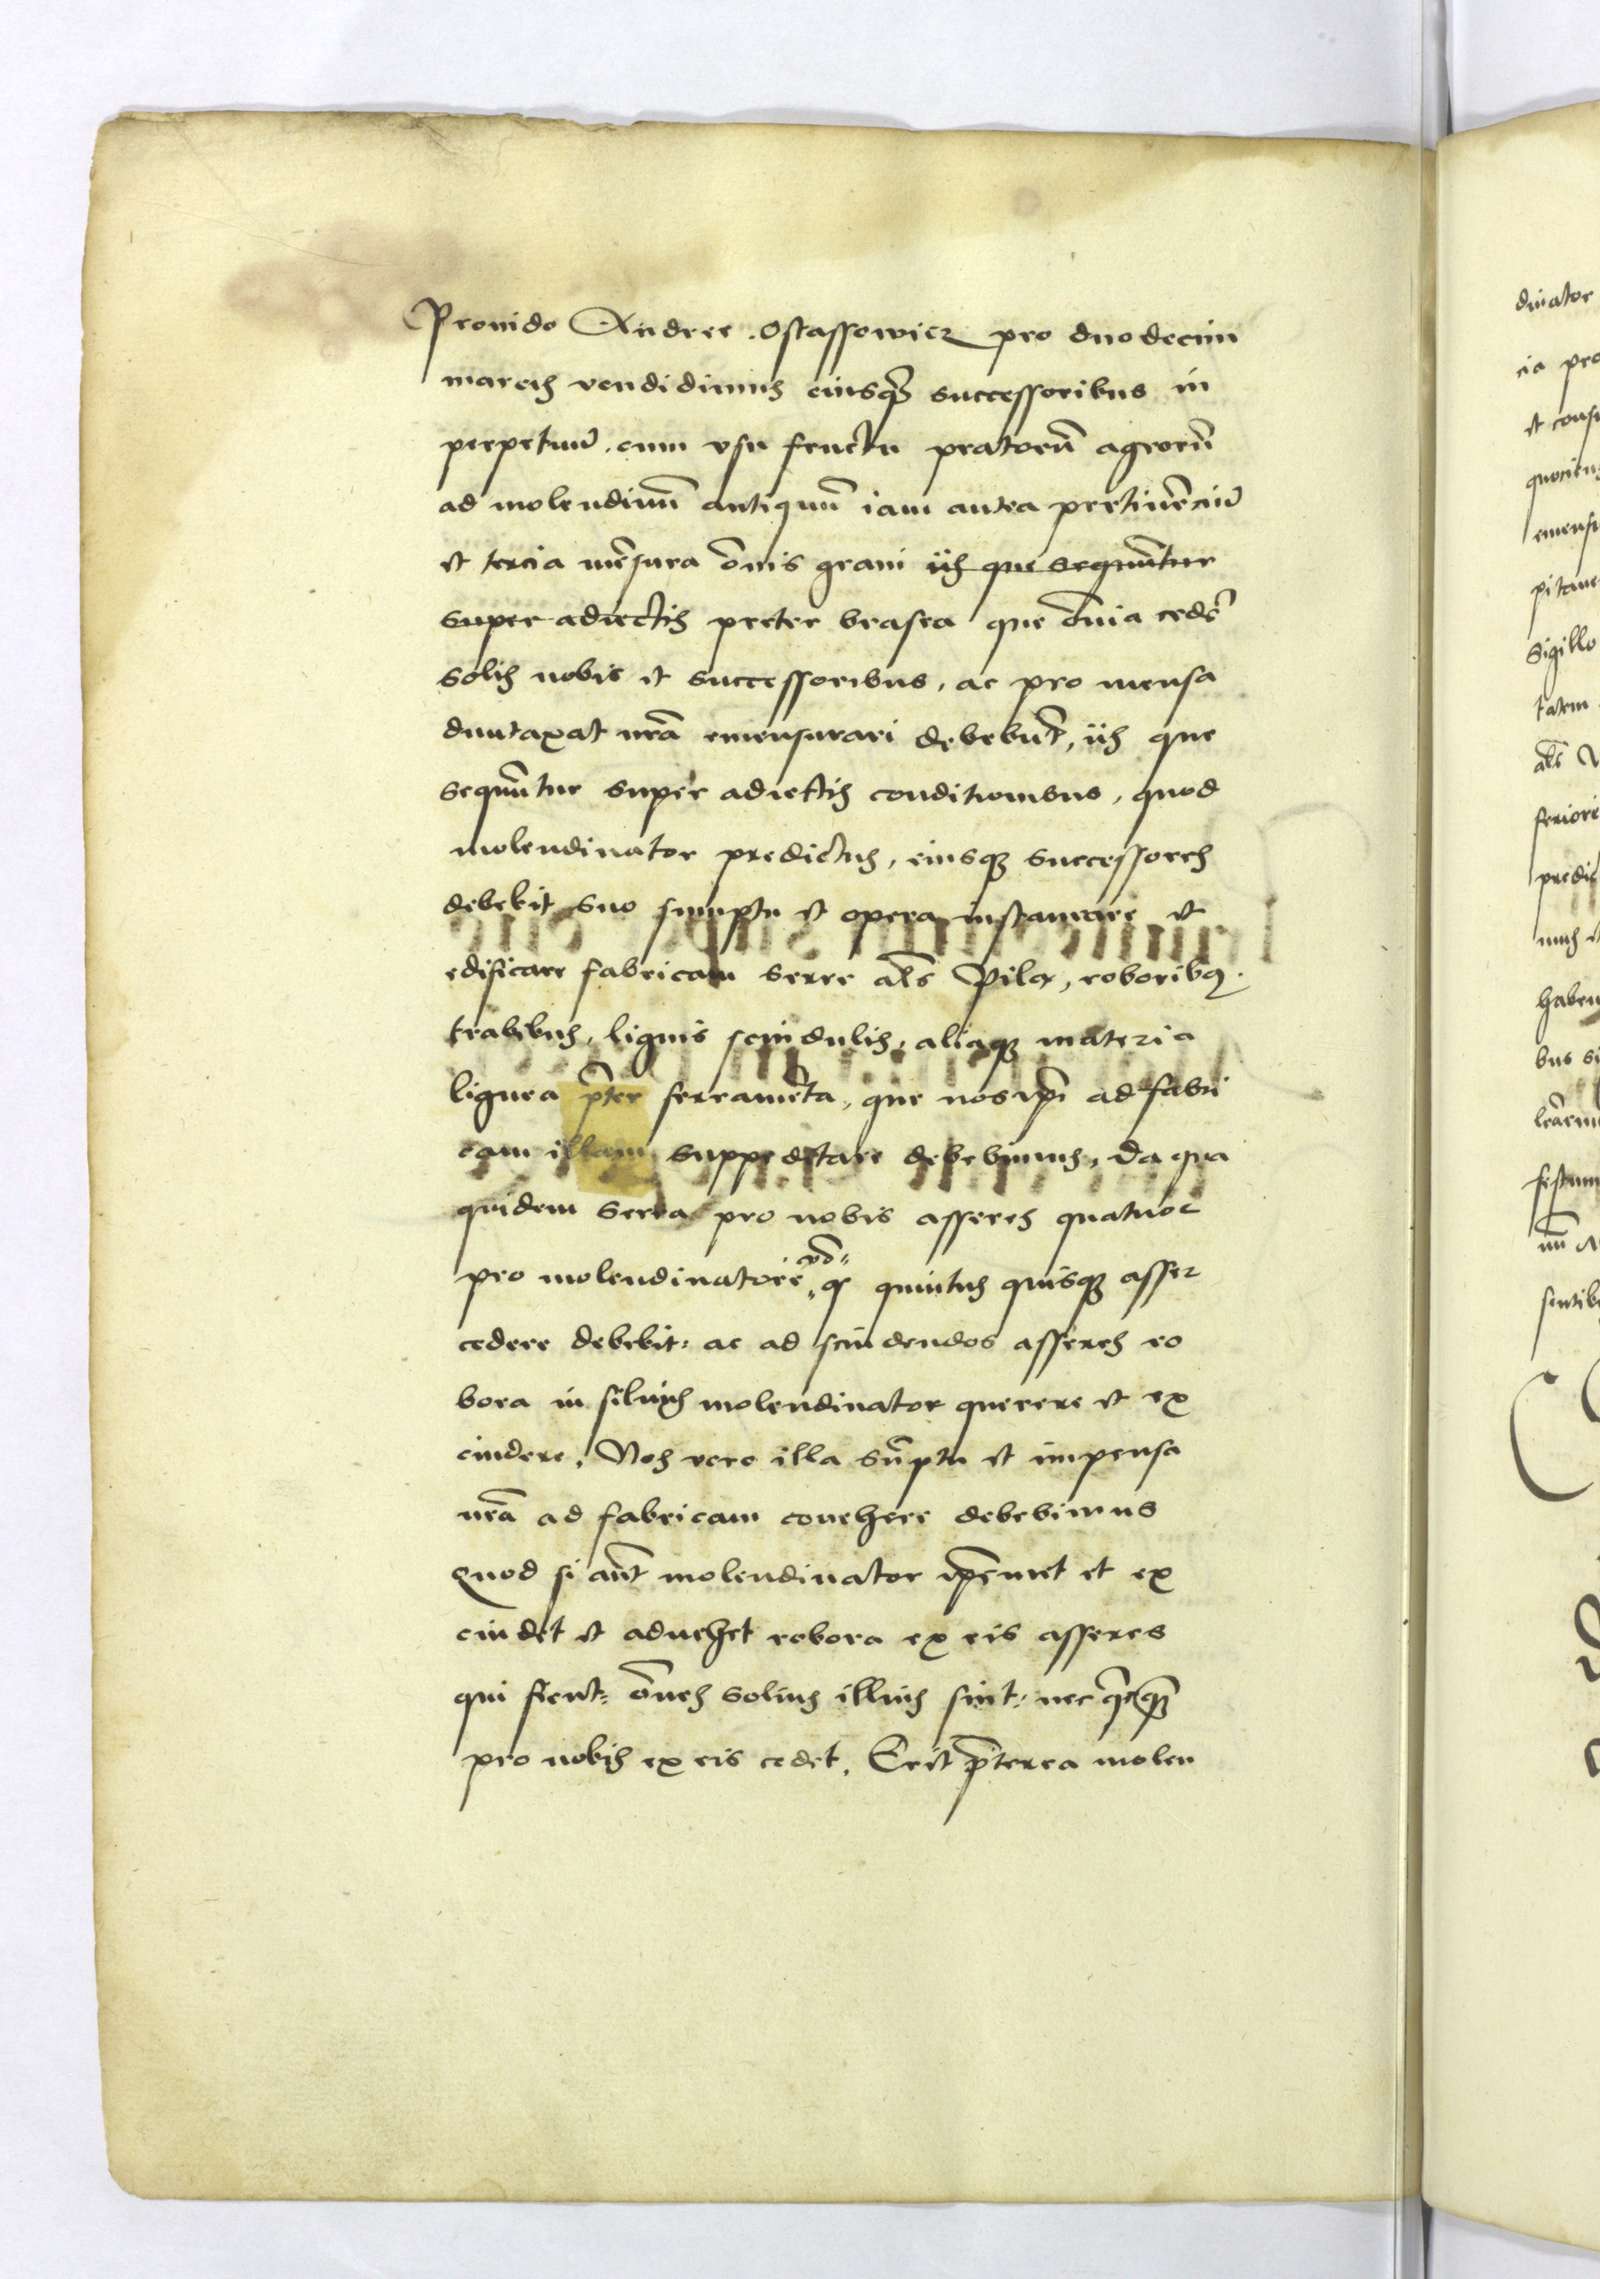 Prouido Andree . Ostassowicz pro duodecim
marcis vendidimus eiusq̃ successoribus in
perpetuũ . cum vsu fructu pratorũ agrorũ
ad molendinũ antiquũ iam antea pertinẽciũ
et tercia mẽsura õnis grani iis que sequũtur
super adiectis preter brasea que õnia cedẽt
solis nobis et successoribus , ac pro mensa
duntaxat nr̃a emensurari debebũt , iis que
sequũtur super adiectis conditionibus , quod
molendinator predictus , eiusq successores
debebit suo sumptu et opera instaurare et
edificare fabricam serre als̃ Pila , roboribꝰ .
trabibus , lignis scindulis , aliaq materia
lignea p̃ter ferramẽta , que nos ip̃i ad fabri
cam illam suppeditare debebimus , Da qua
quidem serra pro nobis asseres quatuor
pro molendinatore quintus quisq asser
cedere debebit : ac ad scindendos asseres ro
bora in siluis molendinator querere et ex
cindere , Nos vero illa sũptu et impensa
nr̃a ad fabricam conehere debebimus
Quod si aũt molendinator ip̃emet et ex
cindet et aduehet robora ex eis asseres
qui fient : õnes solius illius sint : nec q̃cq̃
pro nobis ex eis cedet . Erit p̃terea molen
dinator
cia pro
et consu
quociens
emensu
pitane
Sigillo
tatem
als̃
feriori
predic
haben
bus si
festum